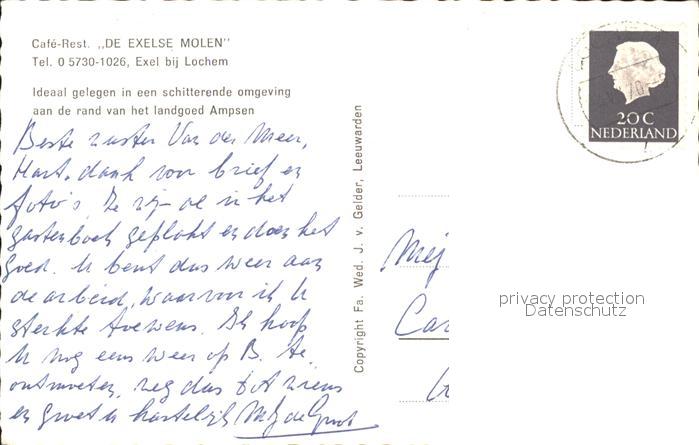 Café-Rest. „DE EXELSE MOLEN"
Tel. 0 5730-1026, Exel bij Lochem
Ideaal gelegen in een schitterende omgeving
aan de rand van het landgoed Ampsen
Beste zuster Van der Meer,
Hart. dank voor brief en
foto's. Ze zijn al in het
gastenboek geplakt en doen het
goed. U bent dus weer aan
de arbeid, waarvoor ik U
sterkte toewens. Ik hoop
U nog eens weer op B. te
ontmoeten, zeg dus tot ziens
en groet U hartelijk
Copyright Fa. Wed. J. v. Gelder, Leeuwarden
20 C
NEDERLAND
Mej
Car
privacy protection
Datenschutz